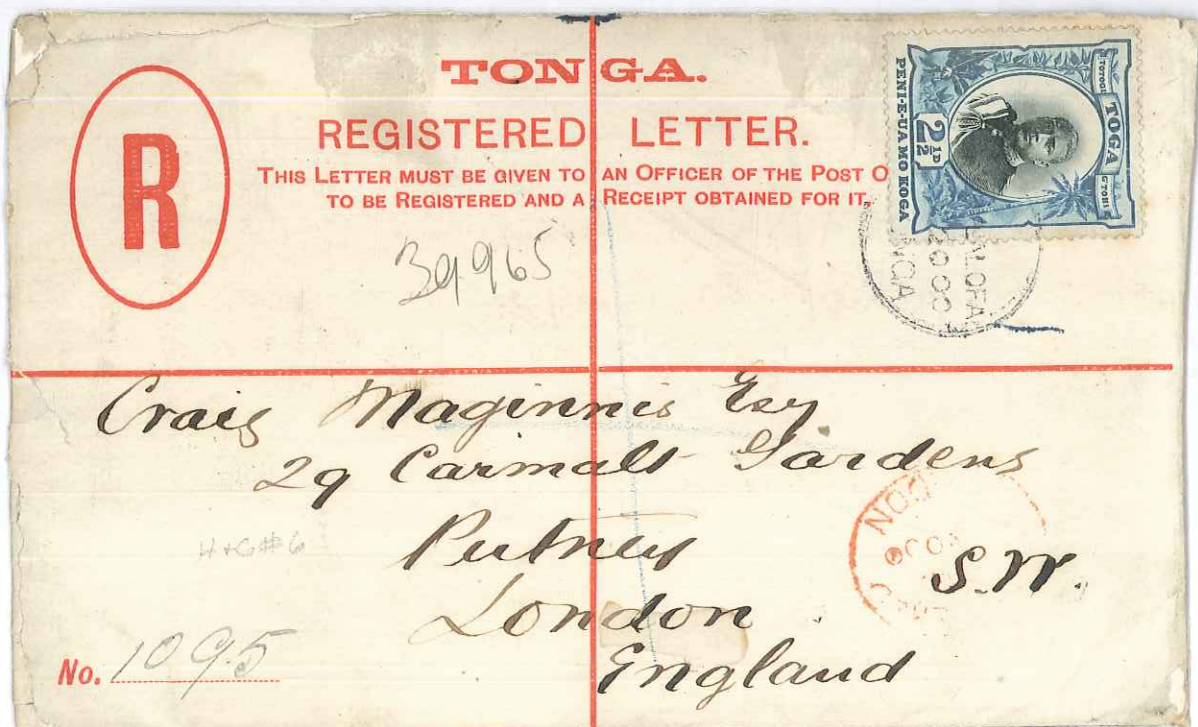 TONGA.
R
REGISTERED LETTER.
THIS LETTER MUST BE GIVEN TO AN OFFICER OF THE POST O
TO BE REGISTERED AND A RECEIPT OBTAINED FOR IT
TOGA
2½D
PENI-E-UA MO KOGA
39965
ALOFA
20 00
Craig Maginnis Esq
29 Carmalt Gardens
Putney
S.W.
London
England
H+G#6
No. 1095